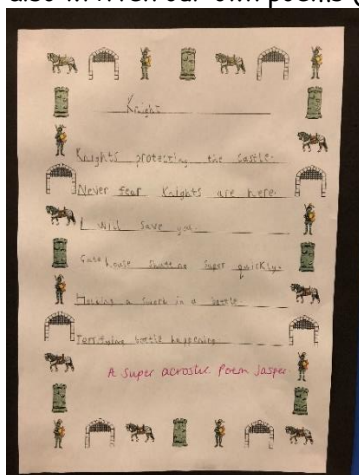 also written our own poems
Knight
Knights protecting the castle.
Never fear Knights are here.
I will save you.
Gate house super quickly.
Holding a sword in a battle.
Terrifying battle happening
A super acrostic poem Jasper.